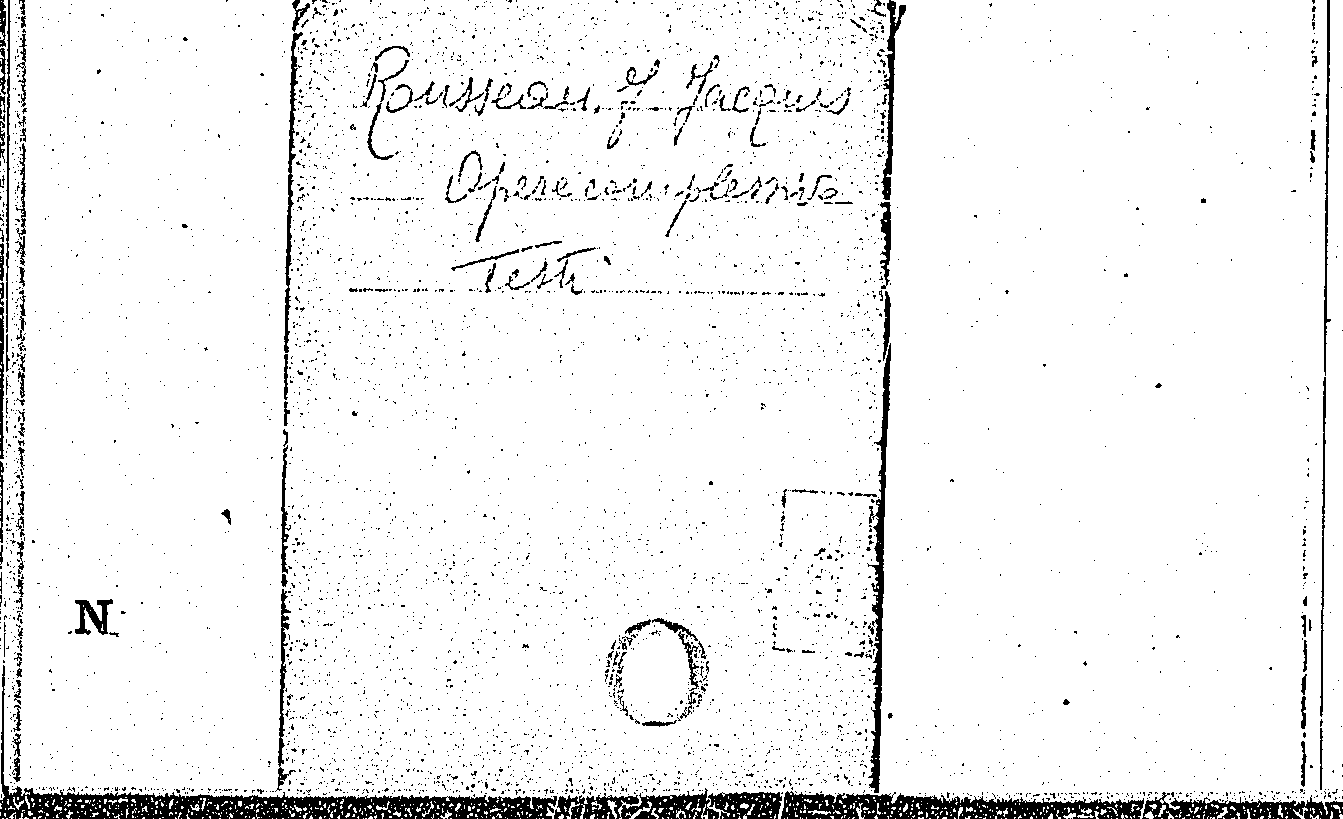 Rousseau, J. Jacques
Opere complessive
Testi
N